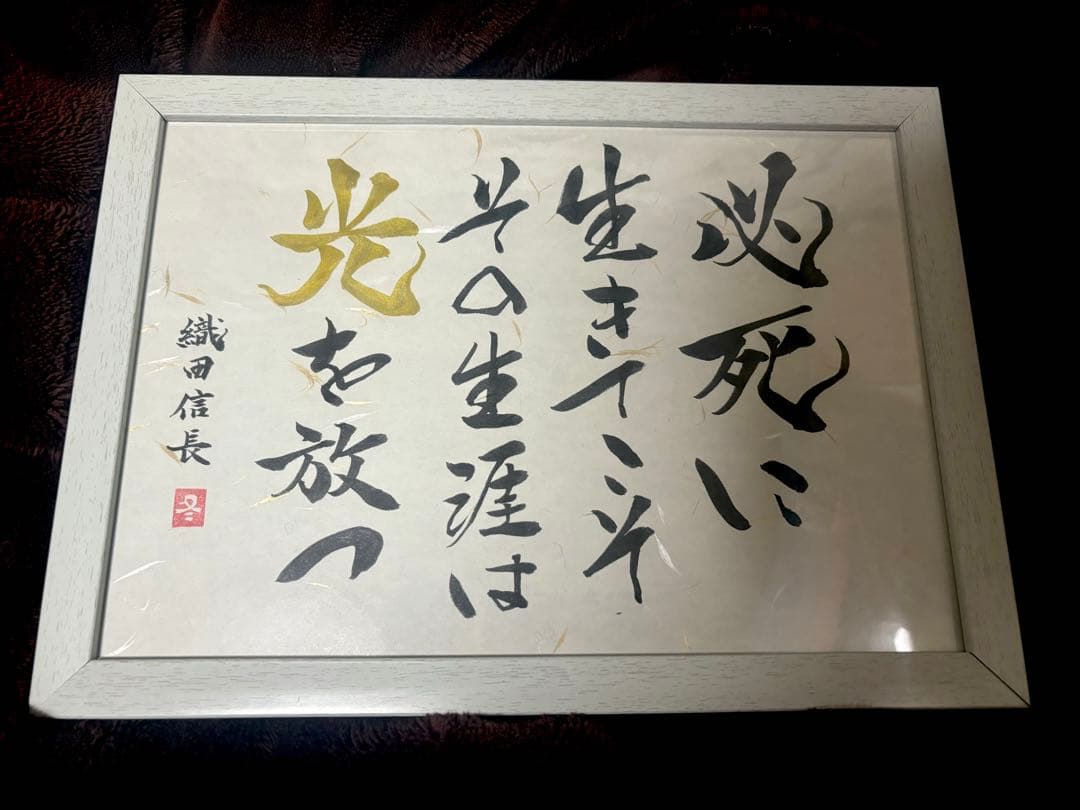 必死に
生きてこそ
その生涯は
光を放つ
織田信長
冬